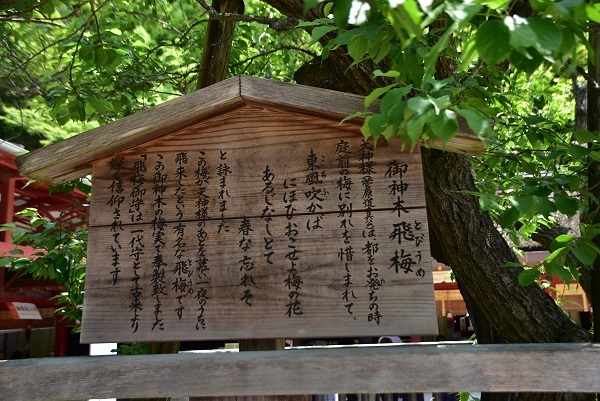 御神木 飛梅
とびうめ
天神様(菅原道真公)は都をお発ちの時
庭前の梅に別れを惜しまれて、
東風吹かば
こち
にほひおこせよ梅の花
あるじなしとて
春な忘れそ
と詠まれました
この梅が天神様のもとへ一夜のうちに
飛来したという有名な飛梅です
とびうめ
この御神木の梅実を奉製致しました
「飛梅御守」は一代守として古来より
篤く信仰されています